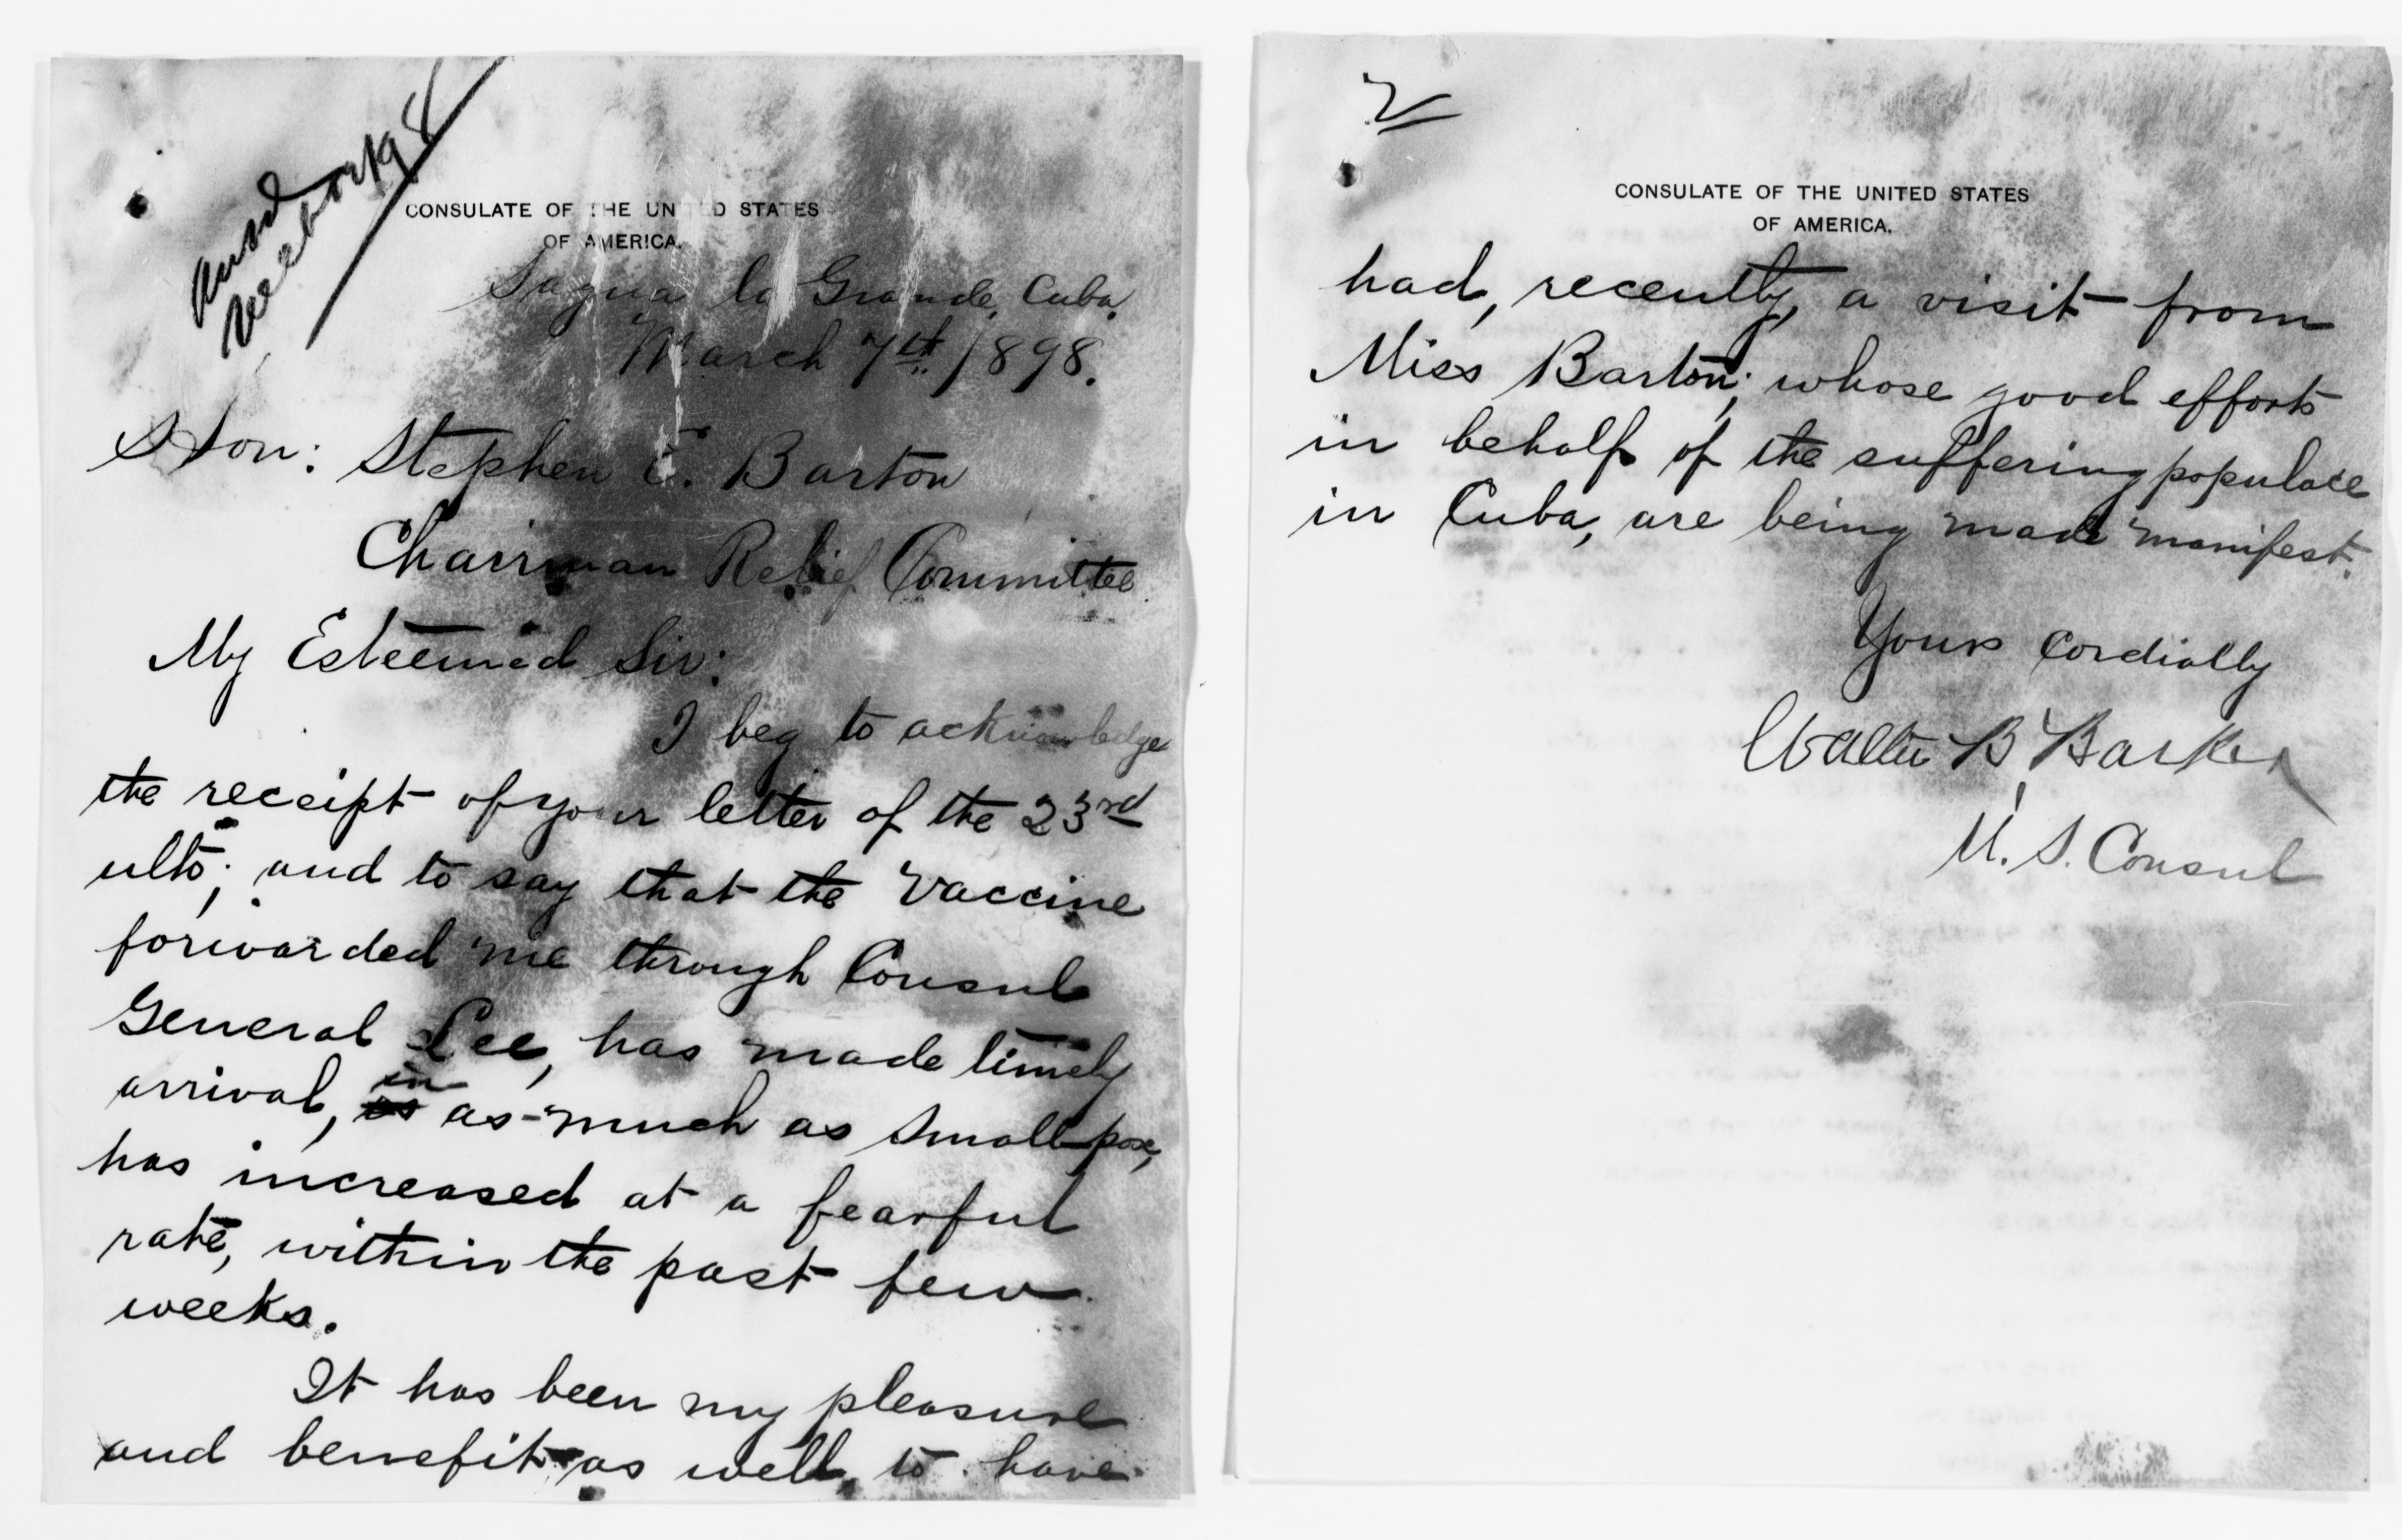 CONSULATE OF THE UNITED STATES
OF AMERICA.
Sagua la Grande, Cuba,
March 7th 1898.
Hon: Stephen E. Barton
Chairman Relief Committee.
My Esteemed Sir:
I beg to acknowledge
the receipt of your letter of the 23rd
ulto; and to say that the vaccine
forwarded me through Consul
General Lee, has made timely
in
arrival, as-much as Small-pox,
has increased at a fearful
rate, within the past few
weeks.
It has been my pleasure
and benefit as well, to have
2
CONSULATE OF THE UNITED STATES
OF AMERICA.
had, recently, a visit from
Miss Barton; whose good efforts
in behalf of the suffering populace
in Cuba, are being made manifest.
Yours Cordially
Walter B. Barker
U. S. Consul